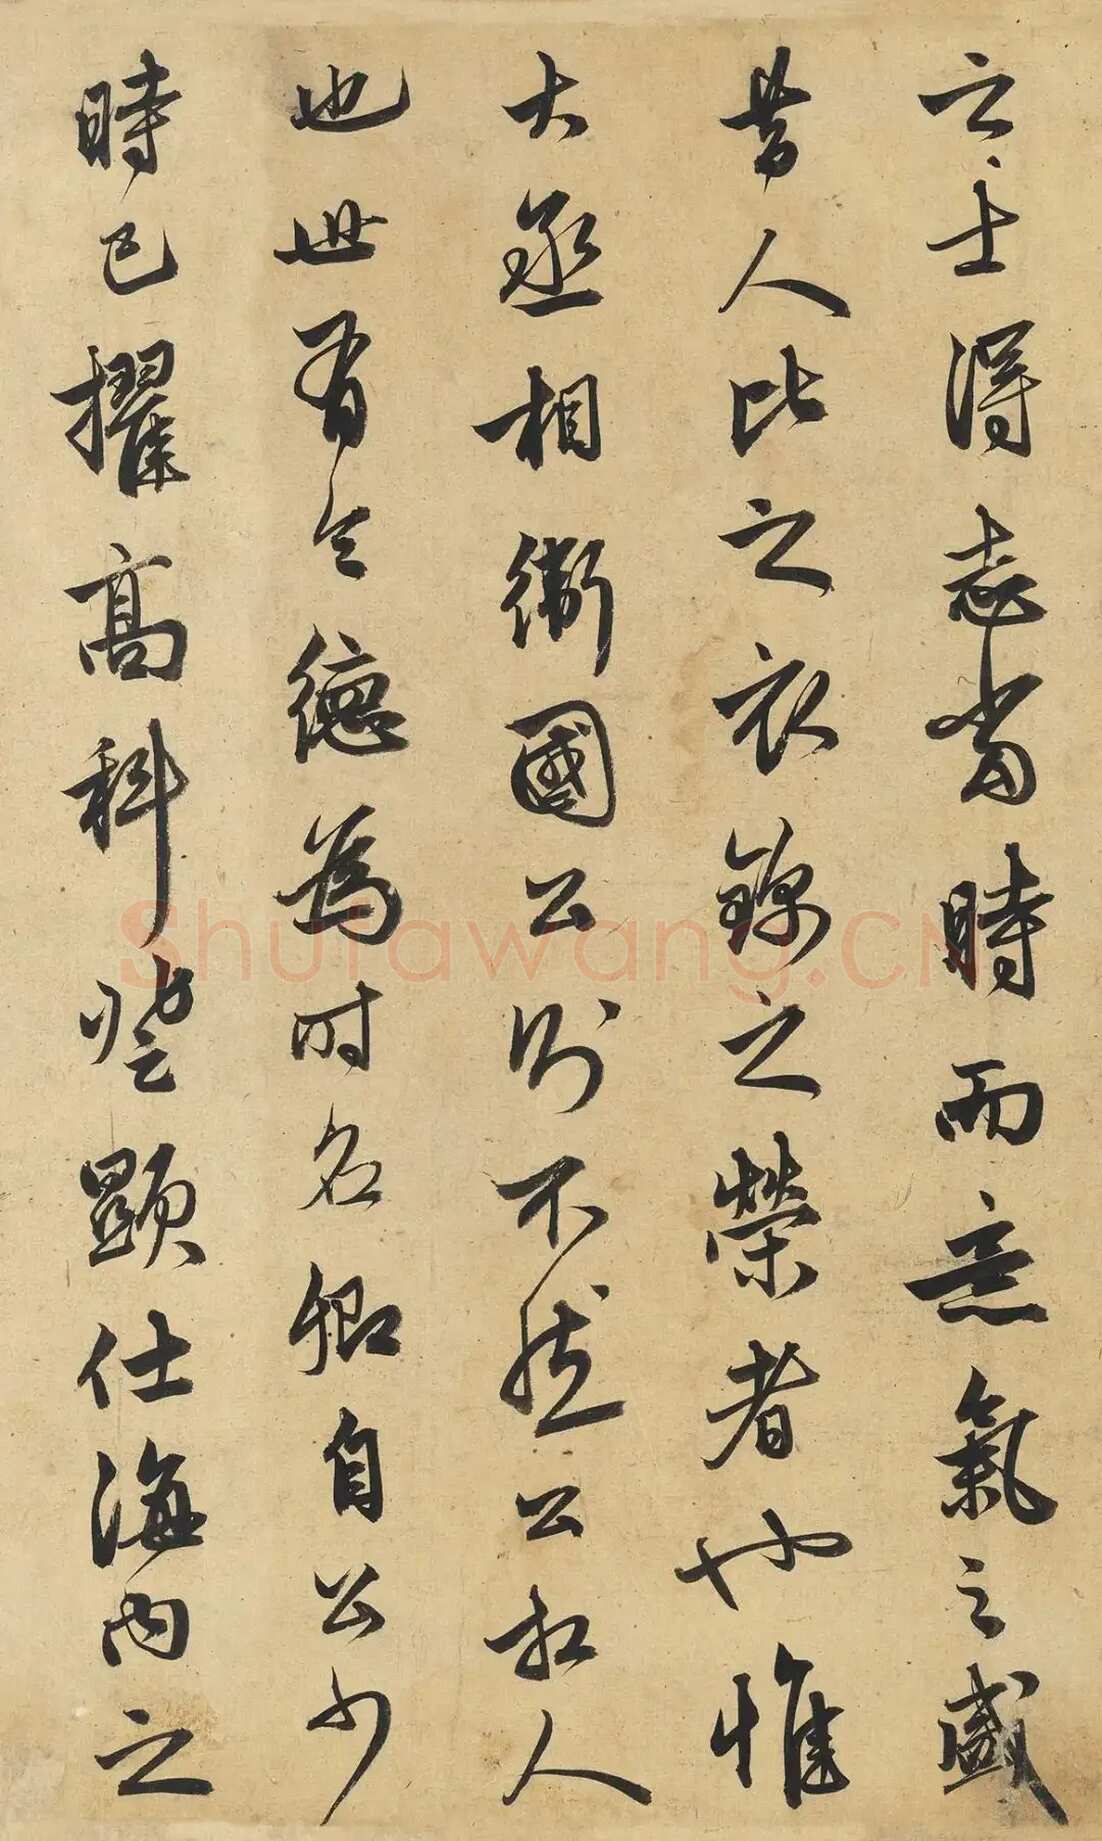 之士得志當時而意氣之盛
昔人比之衣錦之榮者也惟
大丞相衛國公則不然公相人
也世有令德為時名卿自公少
時已擢高科登顯仕海內之
Shufawang.CN